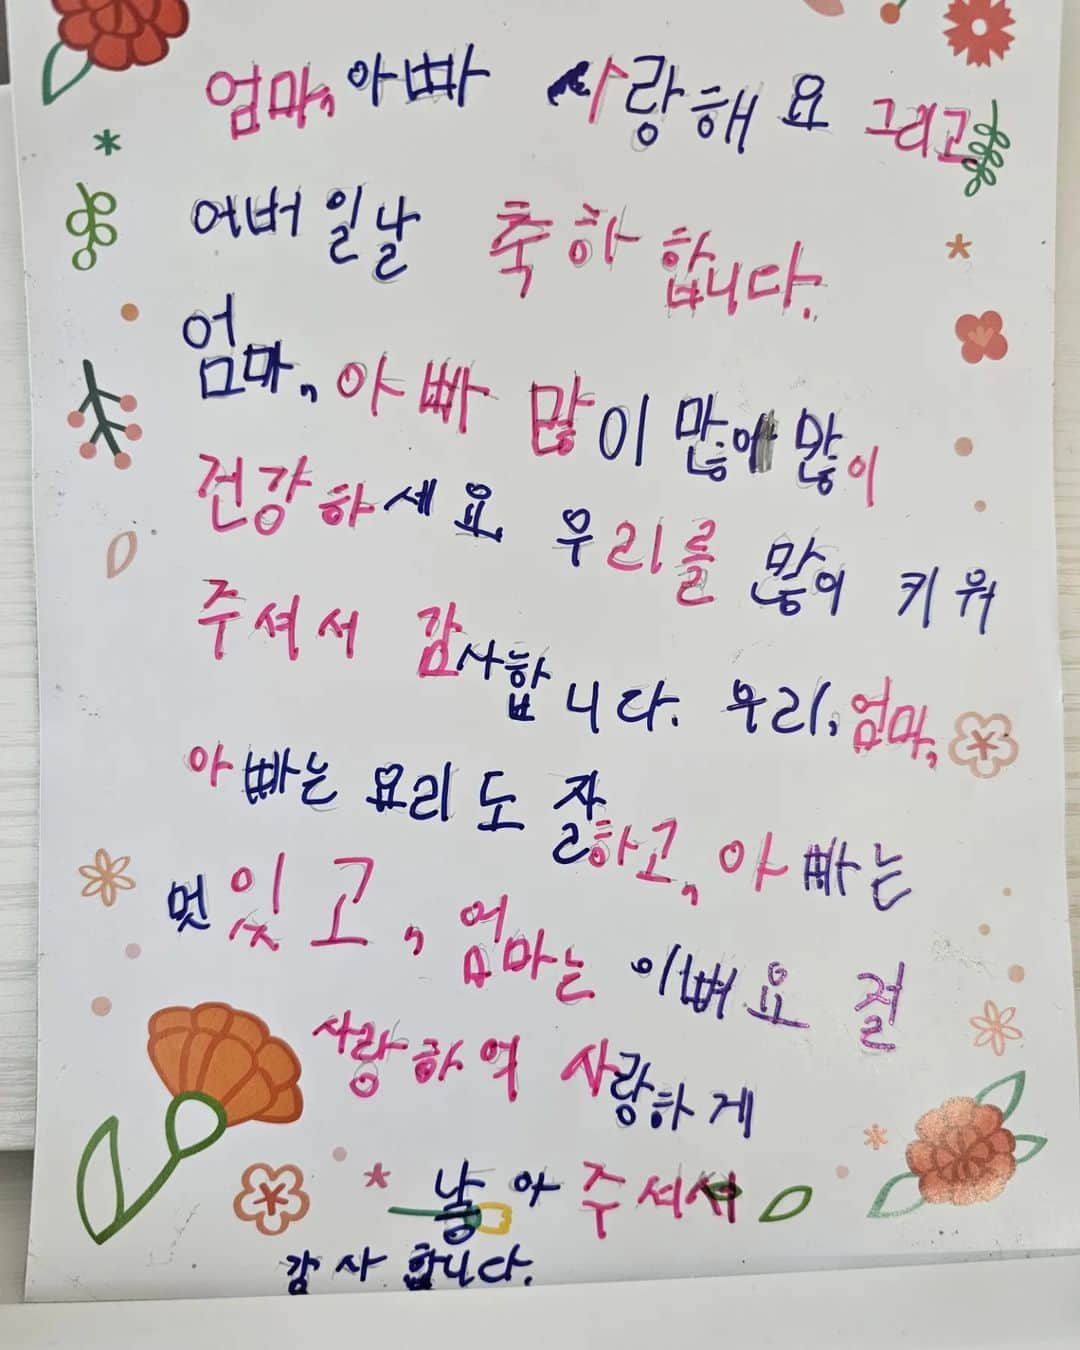 엄마, 아빠 사랑해요 그리고
어버일날 축하합니다.
엄마, 아빠 많이 많이 많이
건강하세요 우리를 많이 키워
주셔서 감사합니다. 우리, 엄마,
아빠는 요리도 잘하고, 아빠는
멋있고, 엄마는 이뻐요 절
사랑하여 사랑하게
낳아 주셔서
감사합니다.